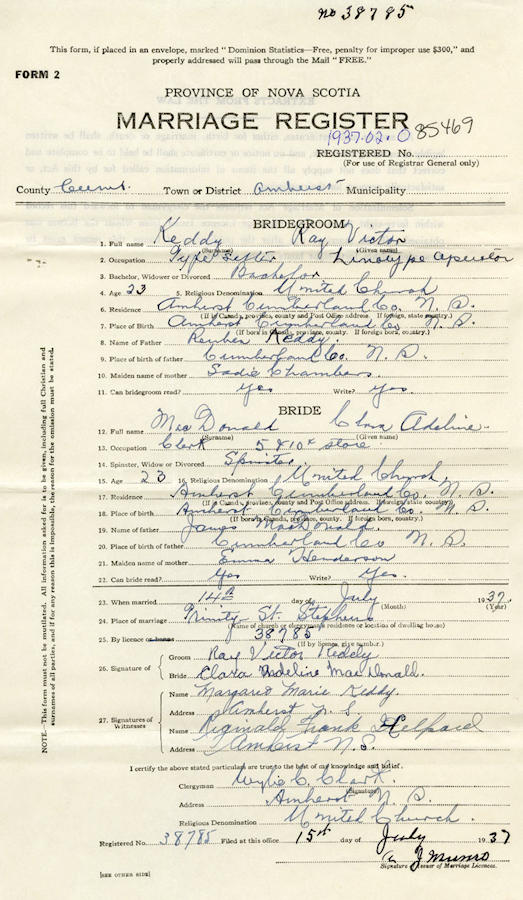 no 38785
This form, if placed in an envelope, marked "Dominion Statistics—Free, penalty for improper use $300," and
properly addressed will pass through the Mail "FREE."
FORM 2
PROVINCE OF NOVA SCOTIA
MARRIAGE REGISTER
1937.02.085469
REGISTERED No.
(For use of Registrar General only)
County Cumb. Town or District Amherst Municipality
BRIDEGROOM
1. Full name Keddy Ray Victor
(Surname) (Given name)
2. Occupation Type Setter Linotype Operator
3. Bachelor, Widower or Divorced Bachelor
4. Age 23 5. Religious Denomination United Church
6. Residence Amherst Cumberland Co. N. S.
(If in Canada, province, county and Post Office address. If foreign, state country.)
7. Place of Birth Amherst Cumberland Co N. S.
(If born in Canada, province, county. If foreign born, country.)
8. Name of Father Reuben Keddy.
9. Place of birth of father Cumberland Co. N. S.
10. Maiden name of mother Sadie Chambers.
11. Can bridegroom read? Yes Write? Yes.
BRIDE
12. Full name MacDonald Clara Adeline.
(Surname) (Given name)
13. Occupation Clerk 5 & 10¢ store.
14. Spinster, Widow or Divorced Spinster
15. Age 23 16. Religious Denomination United Church
17. Residence Amherst Cumberland Co. N. S.
(If in Canada, province, county and Post Office address. If foreign, state country.)
18. Place of birth Amherst Cumberland Co. N. S.
(If born in Canada, province, county. If foreign born, country.)
19. Name of father James MacDonald
20. Place of birth of father Cumberland Co N. S.
21. Maiden name of mother Emma Henderson
22. Can bride read? Yes Write? Yes.
23. When married 14th day of July 1937
(Month) (Year)
24. Place of marriage Trinity St. Stephens
(Name of church or clergyman's residence or location of dwelling house)
25. By licence or banns 38785
(If by license, give number.)
26. Signature of
Groom Ray Victor Keddy
Bride Clara Adeline MacDonald.
27. Signatures of Witnesses
Name Margaret Marie Keddy.
Address Amherst N. S
Name Reginald Frank
Address Amherst N.S.
I certify the above stated particulars are true to the best of my knowledge and belief.
Clergyman Wylie C. Clark.
(Signature)
Address Amherst N. S.
Religious Denomination United Church.
Registered No. 38785 Filed at this office 15th day of July 1937
J Munro
Signature Issuer of Marriage Licences.
[SEE OTHER SIDE]
NOTE.—This form must not be mutilated. All information asked for is to be given, including full Christian and
surnames of all parties, and if for any reason this is impossible, the reason for the omission must be stated.